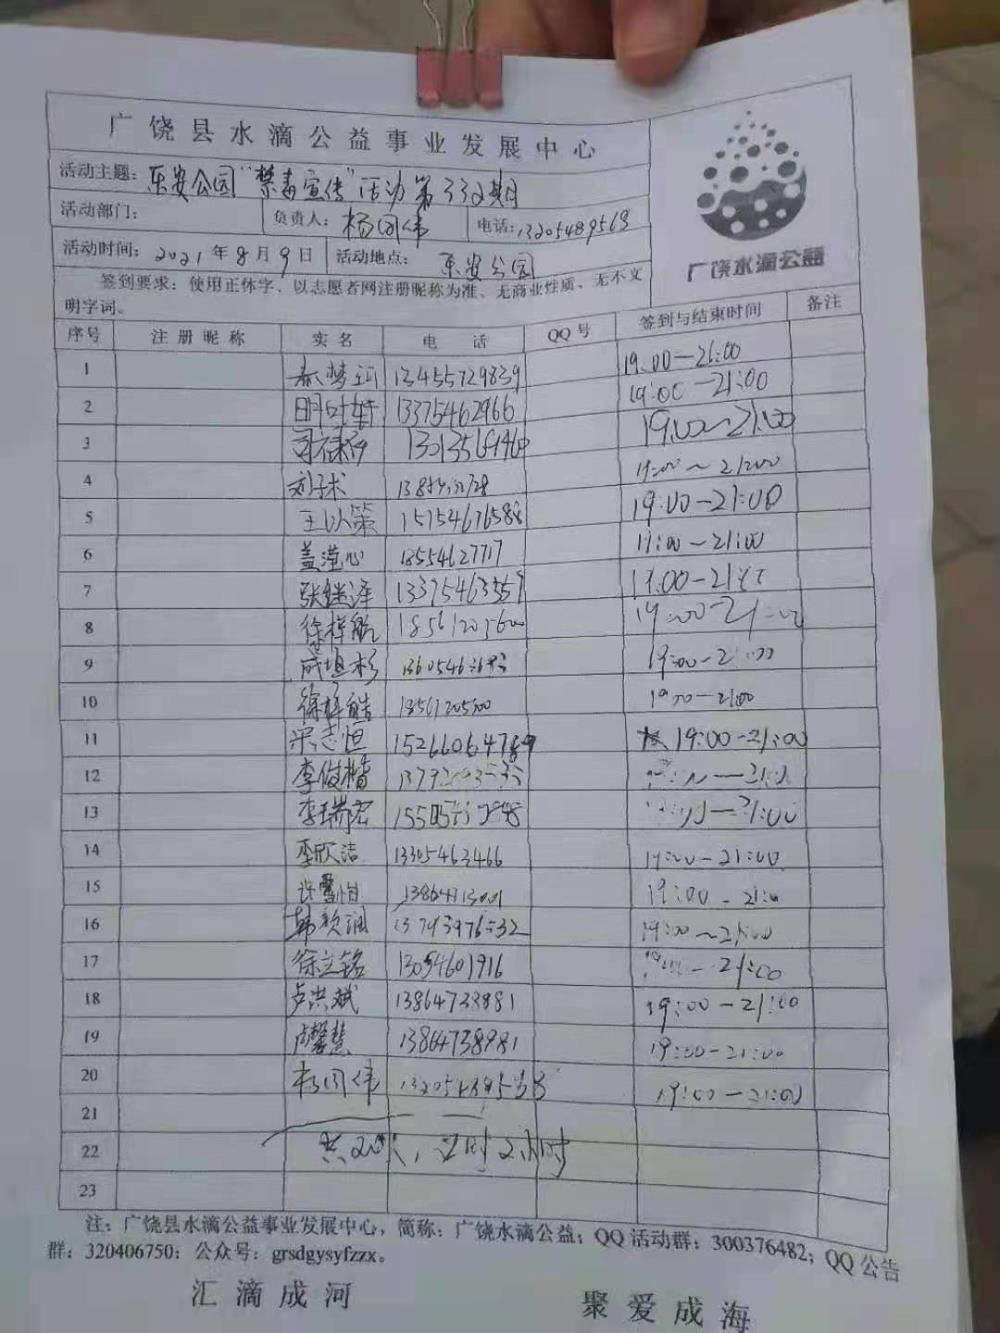 广饶县水滴公益事业发展中心
广饶水滴公益
活动主题：乐安公园“禁毒宣传”活动第332期
活动部门： 负责人：杨国伟 电话：13205489568
活动时间：2021年8月9日 活动地点：乐安公园
签到要求：使用正体字、以志愿者网注册昵称为准、无商业性质、无不文
明字词。
序号 注册昵称 实名 电话 QQ号 签到与结束时间 备注
1 13455729839 19:00—21:00
2 13375462966 19:00—21:00
3 19:00~21:00
4 刘子术 19:00~21:00
5 王以策 15754676588 19:00-21:00
6 盖滢心 18554627717 19:00~21:00
7 张继泽 13375463559 19:00-21:00
8 徐梓航 18561205600 19:00-21:00
9 19:00-21:00
10 徐梓皓 19:00-21:00
11 宋志恒 15266064789 19:00-21:00
12 李俊楷 —21:00
13 李瑞宏 —21:00
14 李欣洁 13305463466 19:00-21:00
15 许馨怡 19:00-21:00
16 韩 19:00~21:00
17 徐立铭 13054601916 -21:00
18 卢洪斌 13864738881 19:00-21:00
19 卢馨慧 13864738981 19:00-21:00
20 杨国伟 19:00-21:00
21
22 共20人，2小时
23
注：广饶县水滴公益事业发展中心，简称：广饶水滴公益；QQ活动群：300376482；QQ公告
群：320406750；公众号：grsdgysyfzzx。
汇滴成河 聚爱成海